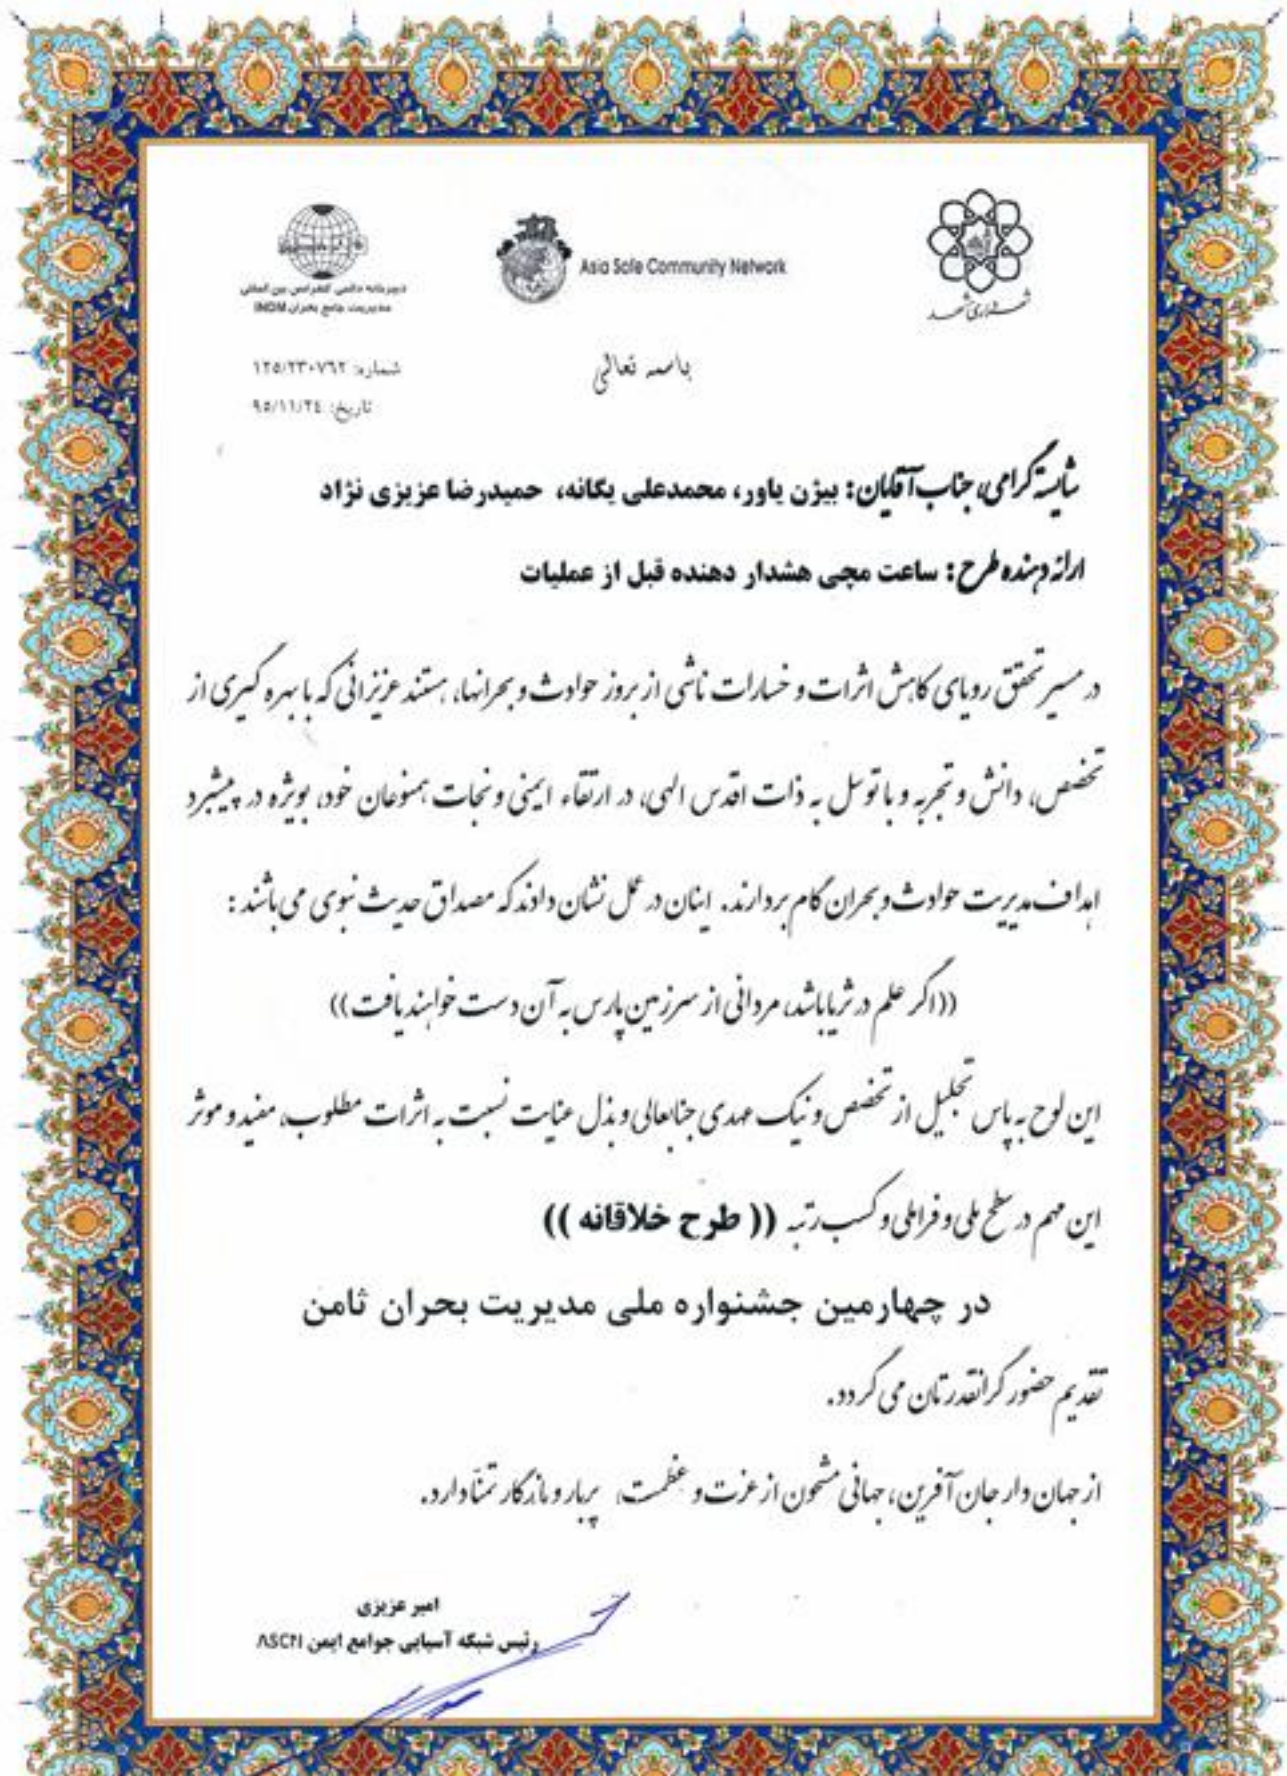 دبیرخانه دائمی کنفرانس بین المللی
مدیریت جامع بحران INDM
Asia Safe Community Network
شهرداری مشهد
باسمه تعالی
شماره: ۱۲۵/۲۳۰۷۶۲
تاریخ: ۹۵/۱۱/۲۴
شایسته گرامی، جناب آقایان: بیژن یاور، محمدعلی یگانه، حمیدرضا عزیزی نژاد
ارائه دهنده طرح: ساعت مچی هشدار دهنده قبل از عملیات
در مسیر تحقق رویای کاهش اثرات و خسارات ناشی از بروز حوادث و بحرانها، هستند عزیزانی که با بهره گیری از
تخصص، دانش و تجربه و با توسل به ذات اقدس الهی، در ارتقاء ایمنی و نجات همنوعان خود، بویژه در پیشبرد
اهداف مدیریت حوادث و بحران گام بردارند. اینان در عمل نشان دادند که مصداق حدیث نبوی می باشند :
((اگر علم در ثریا باشد، مردانی از سرزمین پارس به آن دست خواهند یافت))
این لوح به پاس تجلیل از تخصص و نیک عهدی جنابعالی و بذل عنایت نسبت به اثرات مطلوب، مفید و موثر
این مهم در سطح ملی و فراملی و کسب رتبه (( طرح خلاقانه ))
در چهارمین جشنواره ملی مدیریت بحران ثامن
تقدیم حضور گرانقدرتان می گردد.
از جهان دار جان آفرین، جهانی مشحون از عزت و عظمت، پربار و ماندگار تمنّا دارد.
امیر عزیزی
رئیس شبکه آسیایی جوامع ایمن ASCN